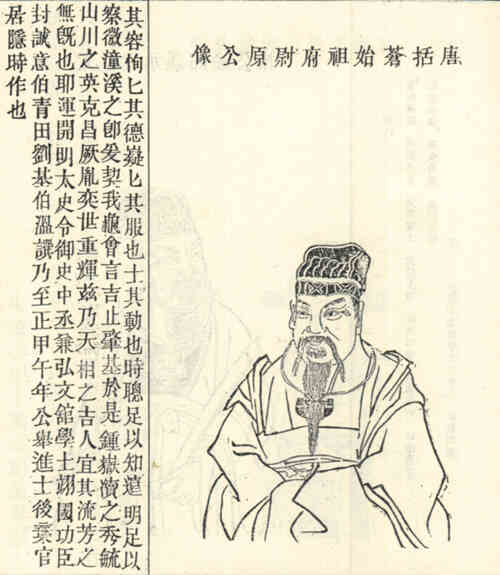 唐括蒼始祖府尉原公像
其容恂匕其德嶷匕其服也士其勒也時聰足以知遠明足以
察微潼溪之卽爰契我龜會言吉止肇基於是鍾嶽瀆之秀毓
山川之英克昌厥胤奕世重輝兹乃天相之吉人宜其流芳之
無旣也耶運開明太史令御史中丞兼弘文館學士翊國功臣
封誠意伯青田劉基伯溫譔乃至正甲午年公舉進士後棄官
居隱時作也